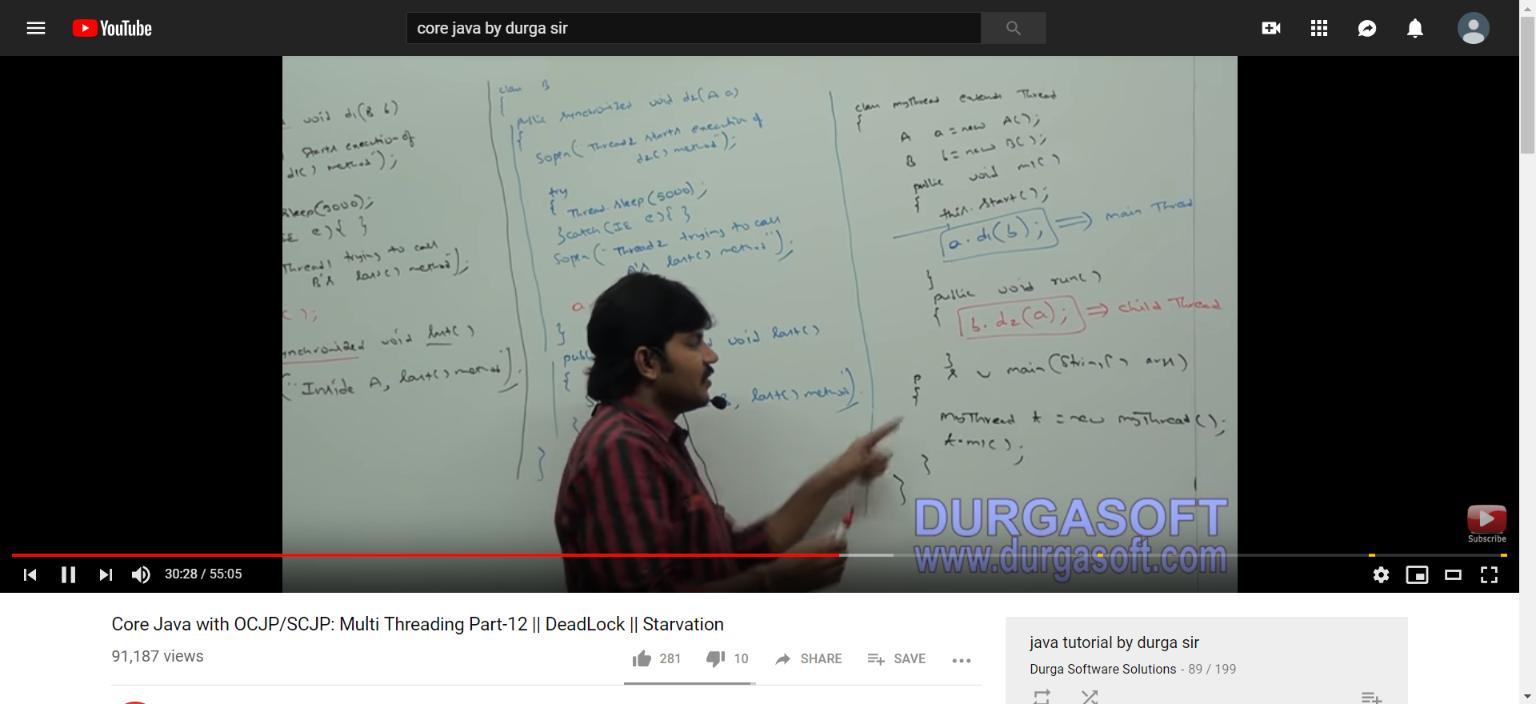 YouTube
core java by durga sir
void d1(B b)
starts execution of
d1() method");
sleep(5000);
IE e){ }
Thread1 trying to call
B's last() method");
();
ynchronized void last()
("Inside A, last() method");
class B
{
public synchronized void d2(A a)
{
Sopln("Thread2 starts execution of
d2() method");
try
{ Thread.sleep(5000);
}catch(IE e){ }
Sopln("Thread2 trying to call
A's last() method");
a
}
publ
void last()
{
B, last() method");
}
}
class MyThread extends Thread
{
A a=new A();
B b=new B();
public void m1()
{
this.start();
a.d1(b); ⇒ main Thread
}
public void run()
{
b.d2(a); ⇒ child Thread
}
p s v main(String[] args)
{
MyThread t = new MyThread();
t.m1();
}
}
DURGASOFT
www.durgasoft.com
Subscribe
30:28 / 55:05
Core Java with OCJP/SCJP: Multi Threading Part-12 || DeadLock || Starvation
91,187 views
281
10
SHARE
SAVE
java tutorial by durga sir
Durga Software Solutions - 89 / 199